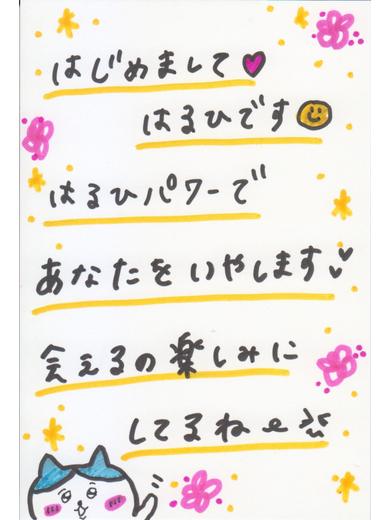 はじめまして♥
はるひです☺
はるひパワーで
あなたをいやします♥
会えるの楽しみに
してるね